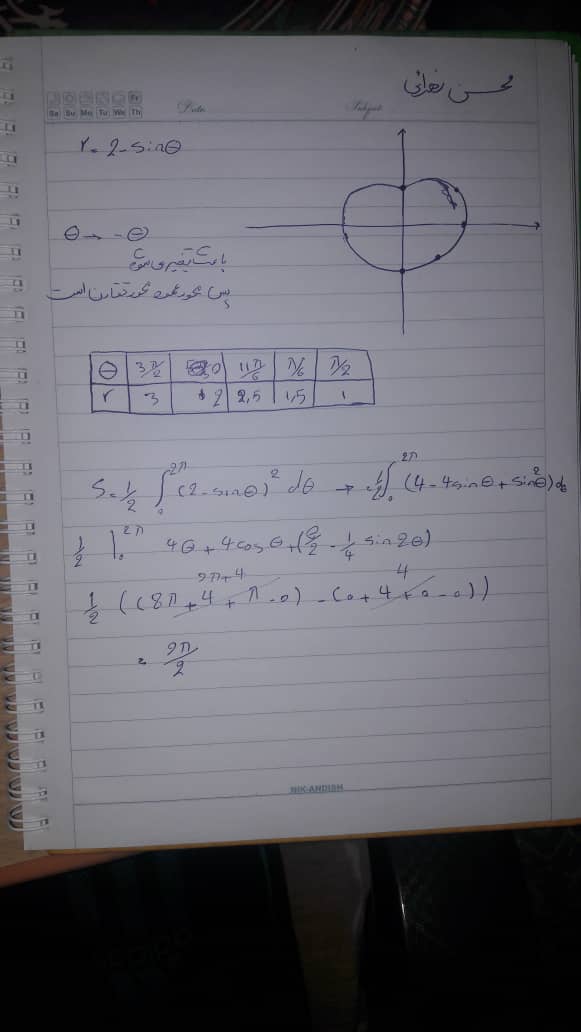 محسن نصرالهی
Fr
Sa Su Mo Tu We Th
Date
Subject
r = 2 - sinθ
θ → -θ
باعث تغییر می‌شود
پس محور عمود محور تقارن است
θ 3π/2 0 11π/6 π/6 π/2
r 3 2 2,5 1,5 1
S = 1/2 ∫₀^2π (2 - sinθ)² dθ → 1/2 ∫₀^2π (4 - 4sinθ + sin²θ) dθ
1/2 |₀^2π 4θ + 4cosθ + (θ/2 - 1/4 sin2θ)
9π+4 4
1/2 ((8π + 4 + π - 0) - (0 + 4 + 0 - 0))
= 9π/2
NIK-ANDISH